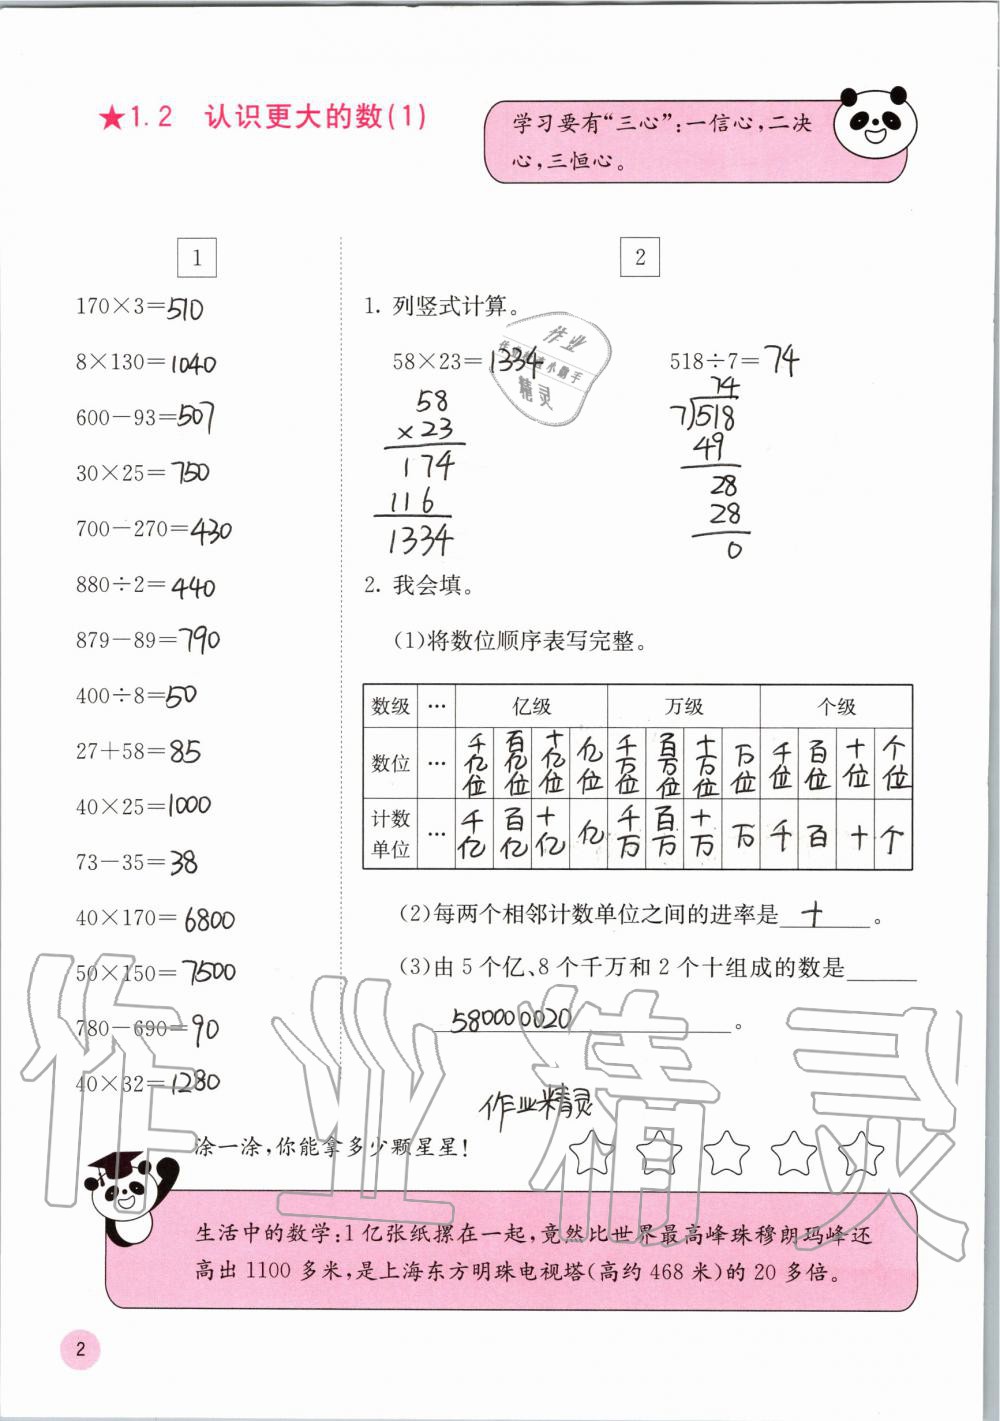 ★1.2 认识更大的数(1)
学习要有“三心”:一信心,二决
心,三恒心。
1
170×3=510
8×130=1040
600-93=507
30×25=750
700-270=430
880÷2=440
879-89=790
400÷8=50
27+58=85
40×25=1000
73-35=38
40×170=6800
50×150=7500
780-690=90
40×32=1280
2
1. 列竖式计算。
58×23=1334
58
×23
174
116
1334
518÷7=74
74
7)518
49
28
28
0
作业
精灵
2. 我会填。
(1)将数位顺序表写完整。
数级 … 亿级 万级 个级
数位 … 千亿位 百亿位 十亿位 亿位 千万位 百万位 十万位 万位 千位 百位 十位 个位
计数单位 … 千亿 百亿 十亿 亿 千万 百万 十万 万 千 百 十 个
(2)每两个相邻计数单位之间的进率是 十 。
(3)由 5 个亿、8 个千万和 2 个十组成的数是
580000020 。
作业精灵
涂一涂,你能拿多少颗星星!
生活中的数学:1 亿张纸摞在一起,竟然比世界最高峰珠穆朗玛峰还
高出 1100 多米,是上海东方明珠电视塔(高约 468 米)的 20 多倍。
作业精灵
2